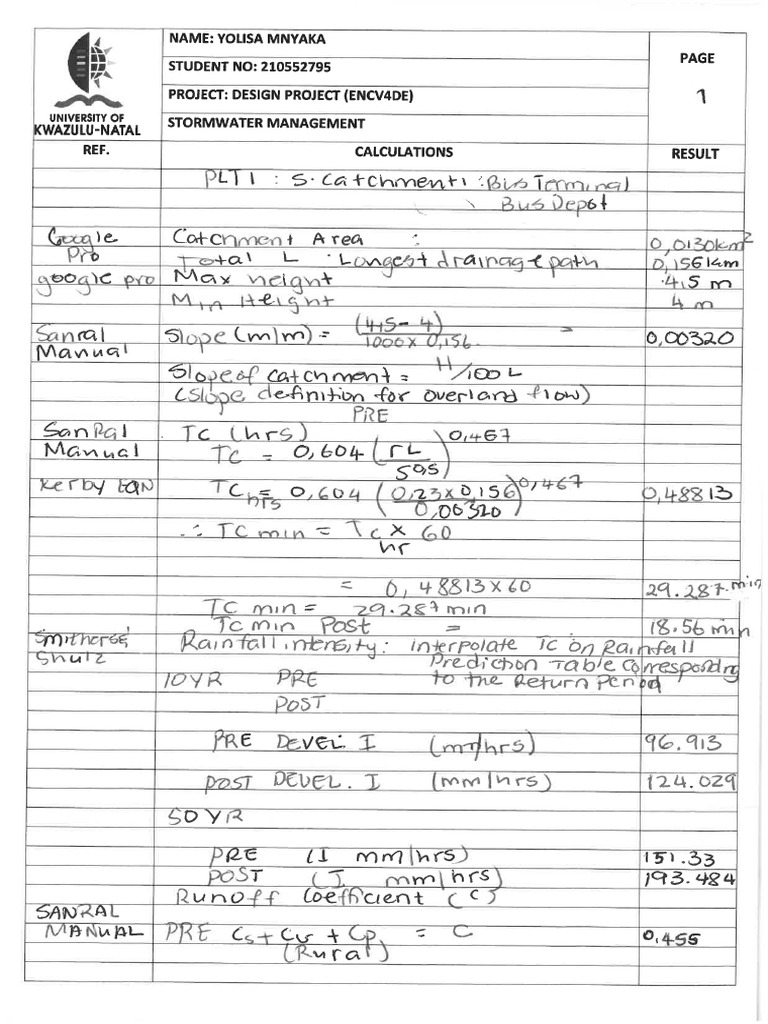 NAME: YOLISA MNYAKA
PAGE
STUDENT NO: 210552795
1
PROJECT: DESIGN PROJECT (ENCV4DE)
UNIVERSITY OF
KWAZULU-NATAL
STORMWATER MANAGEMENT
REF. CALCULATIONS RESULT
PLT1 : S.Catchment1 : Bus Terminal
Bus Depot
Google Pro Catchment Area : 0,0130km²
Total L : Longest drainage path 0,156km
google pro Max height 4.5 m
Min Height 4 m
Sanral Manual Slope (m/m) = (4,5-4) / 1000 x 0,156 = 0,00320
Slope of catchment = H/100L
(slope definition for overland flow)
PRE
SanRal Manual Tc (hrs)
Tc = 0,604 (rL / S^0,5)^0,467
Kerby EQN Tc hrs = 0,604 (0,23x0,156 / 0,00320)^0,467 0,48813
∴ TC min = Tc hr x 60
= 0,48813x60 29.287 min
TC min = 29.287 min
TC min Post = 18.56 min
Smithers & Shulz Rainfall intensity: interpolate TC on Rainfall
Prediction Table Correspondng
10YR PRE to the Return Period
POST
PRE DEVEL. I (m/hrs) 96.913
POST DEVEL. I (mm/hrs) 124.029
50YR
PRE (I mm/hrs) 151.33
POST (I mm/hrs) 193.484
Runoff Coefficient (C)
SANRAL
MANUAL PRE Cs + Cv + Cp = C 0.455
(Rural)